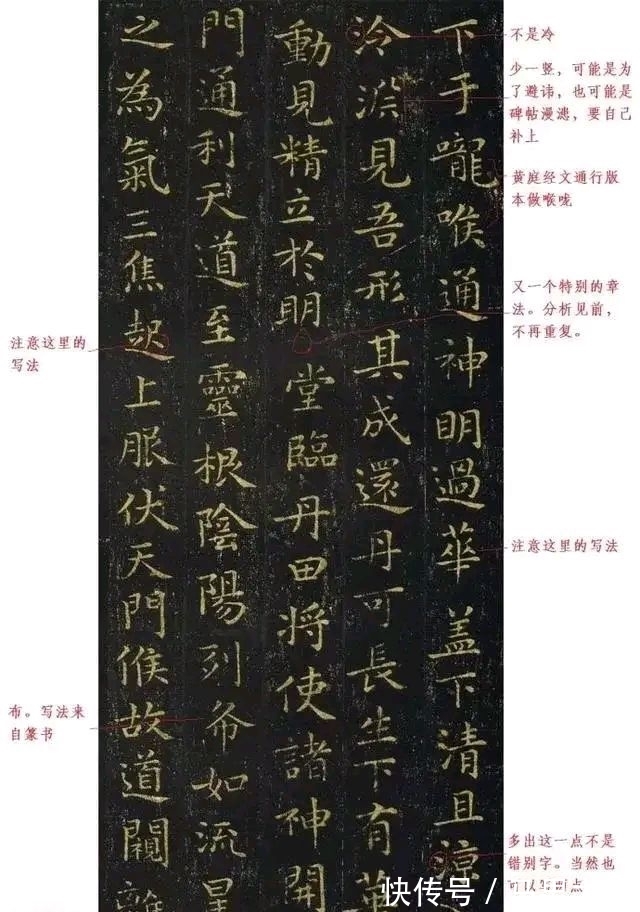 下于嚨喉通神明過華盖下清且涼
泠淵見吾形其成還丹可長生下有華
動見精立於明堂臨丹田將使諸神開
門通利天道至靈根陰陽列布如流星
之為氣三焦起上服伏天門候故道闚
不是冷
少一竖，可能是为
了避讳，也可能是
碑帖漫漶，要自己
补上
黄庭经文通行版
本做喉咙
又一个特别的章
法。分析见前，
不再重复。
注意这里的写法
多出这一点不是
错别字。当然也
可以
注意这里的
写法
布。写法来
自篆书
快传号/